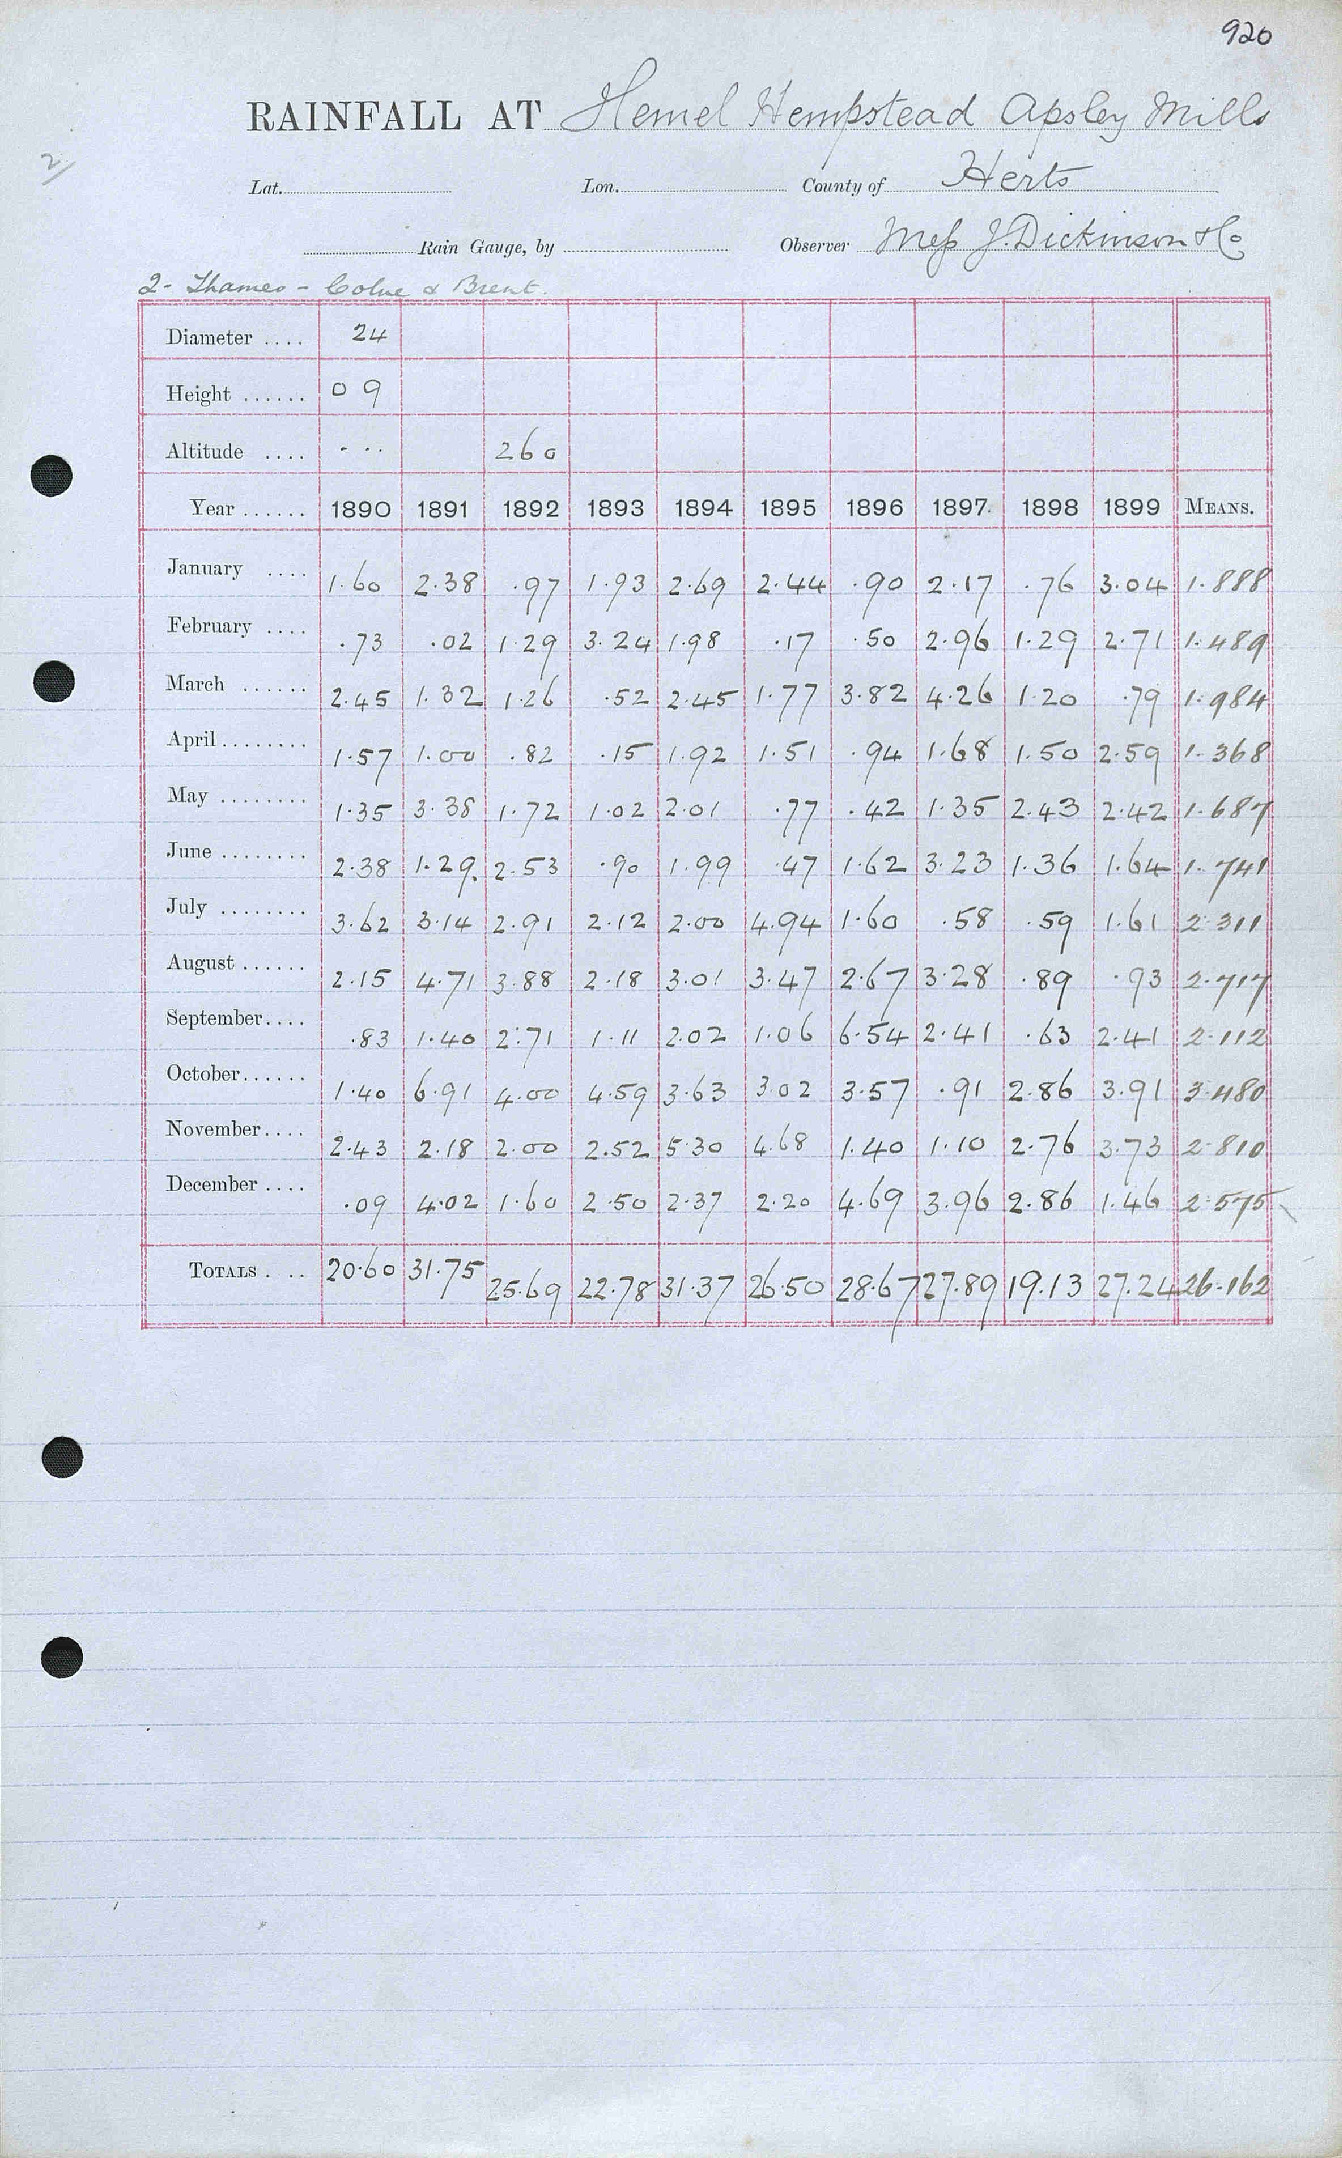 920
RAINFALL AT Hemel Hempstead Apsley Mills
2
Lat. Lon. County of Herts
Rain Gauge, by Observer Mess J. Dickinson & Co
2- Thames - Colne & Brent.
Diameter .... 24
Height ...... 0 9
Altitude .... - .. 260
Year ...... 1890 1891 1892 1893 1894 1895 1896 1897 1898 1899 MEANS.
January .... 1.60 2.38 .97 1.93 2.69 2.44 .90 2.17 .76 3.04 1.888
February .... .73 .02 1.29 3.24 1.98 .17 .50 2.96 1.29 2.71 1.489
March ...... 2.45 1.32 1.26 .52 2.45 1.77 3.82 4.26 1.20 .79 1.984
April........ 1.57 1.00 .82 .15 1.92 1.51 .94 1.68 1.50 2.59 1.368
May ........ 1.35 3.38 1.72 1.02 2.01 .77 .42 1.35 2.43 2.42 1.687
June ........ 2.38 1.29. 2.53 .90 1.99 .47 1.62 3.23 1.36 1.64 1.741
July ........ 3.62 3.14 2.91 2.12 2.00 4.94 1.60 .58 .59 1.61 2.311
August ...... 2.15 4.71 3.88 2.18 3.01 3.47 2.67 3.28 .89 .93 2.717
September.... .83 1.40 2.71 1.11 2.02 1.06 6.54 2.41 .63 2.41 2.112
October...... 1.40 6.91 4.00 4.59 3.63 3.02 3.57 .91 2.86 3.91 3.480
November.... 2.43 2.18 2.00 2.52 5.30 4.68 1.40 1.10 2.76 3.73 2.810
December .... .09 4.02 1.60 2.50 2.37 2.20 4.69 3.96 2.86 1.46 2.575
TOTALS . .. 20.60 31.75 25.69 22.78 31.37 26.50 28.67 27.89 19.13 27.24 26.162